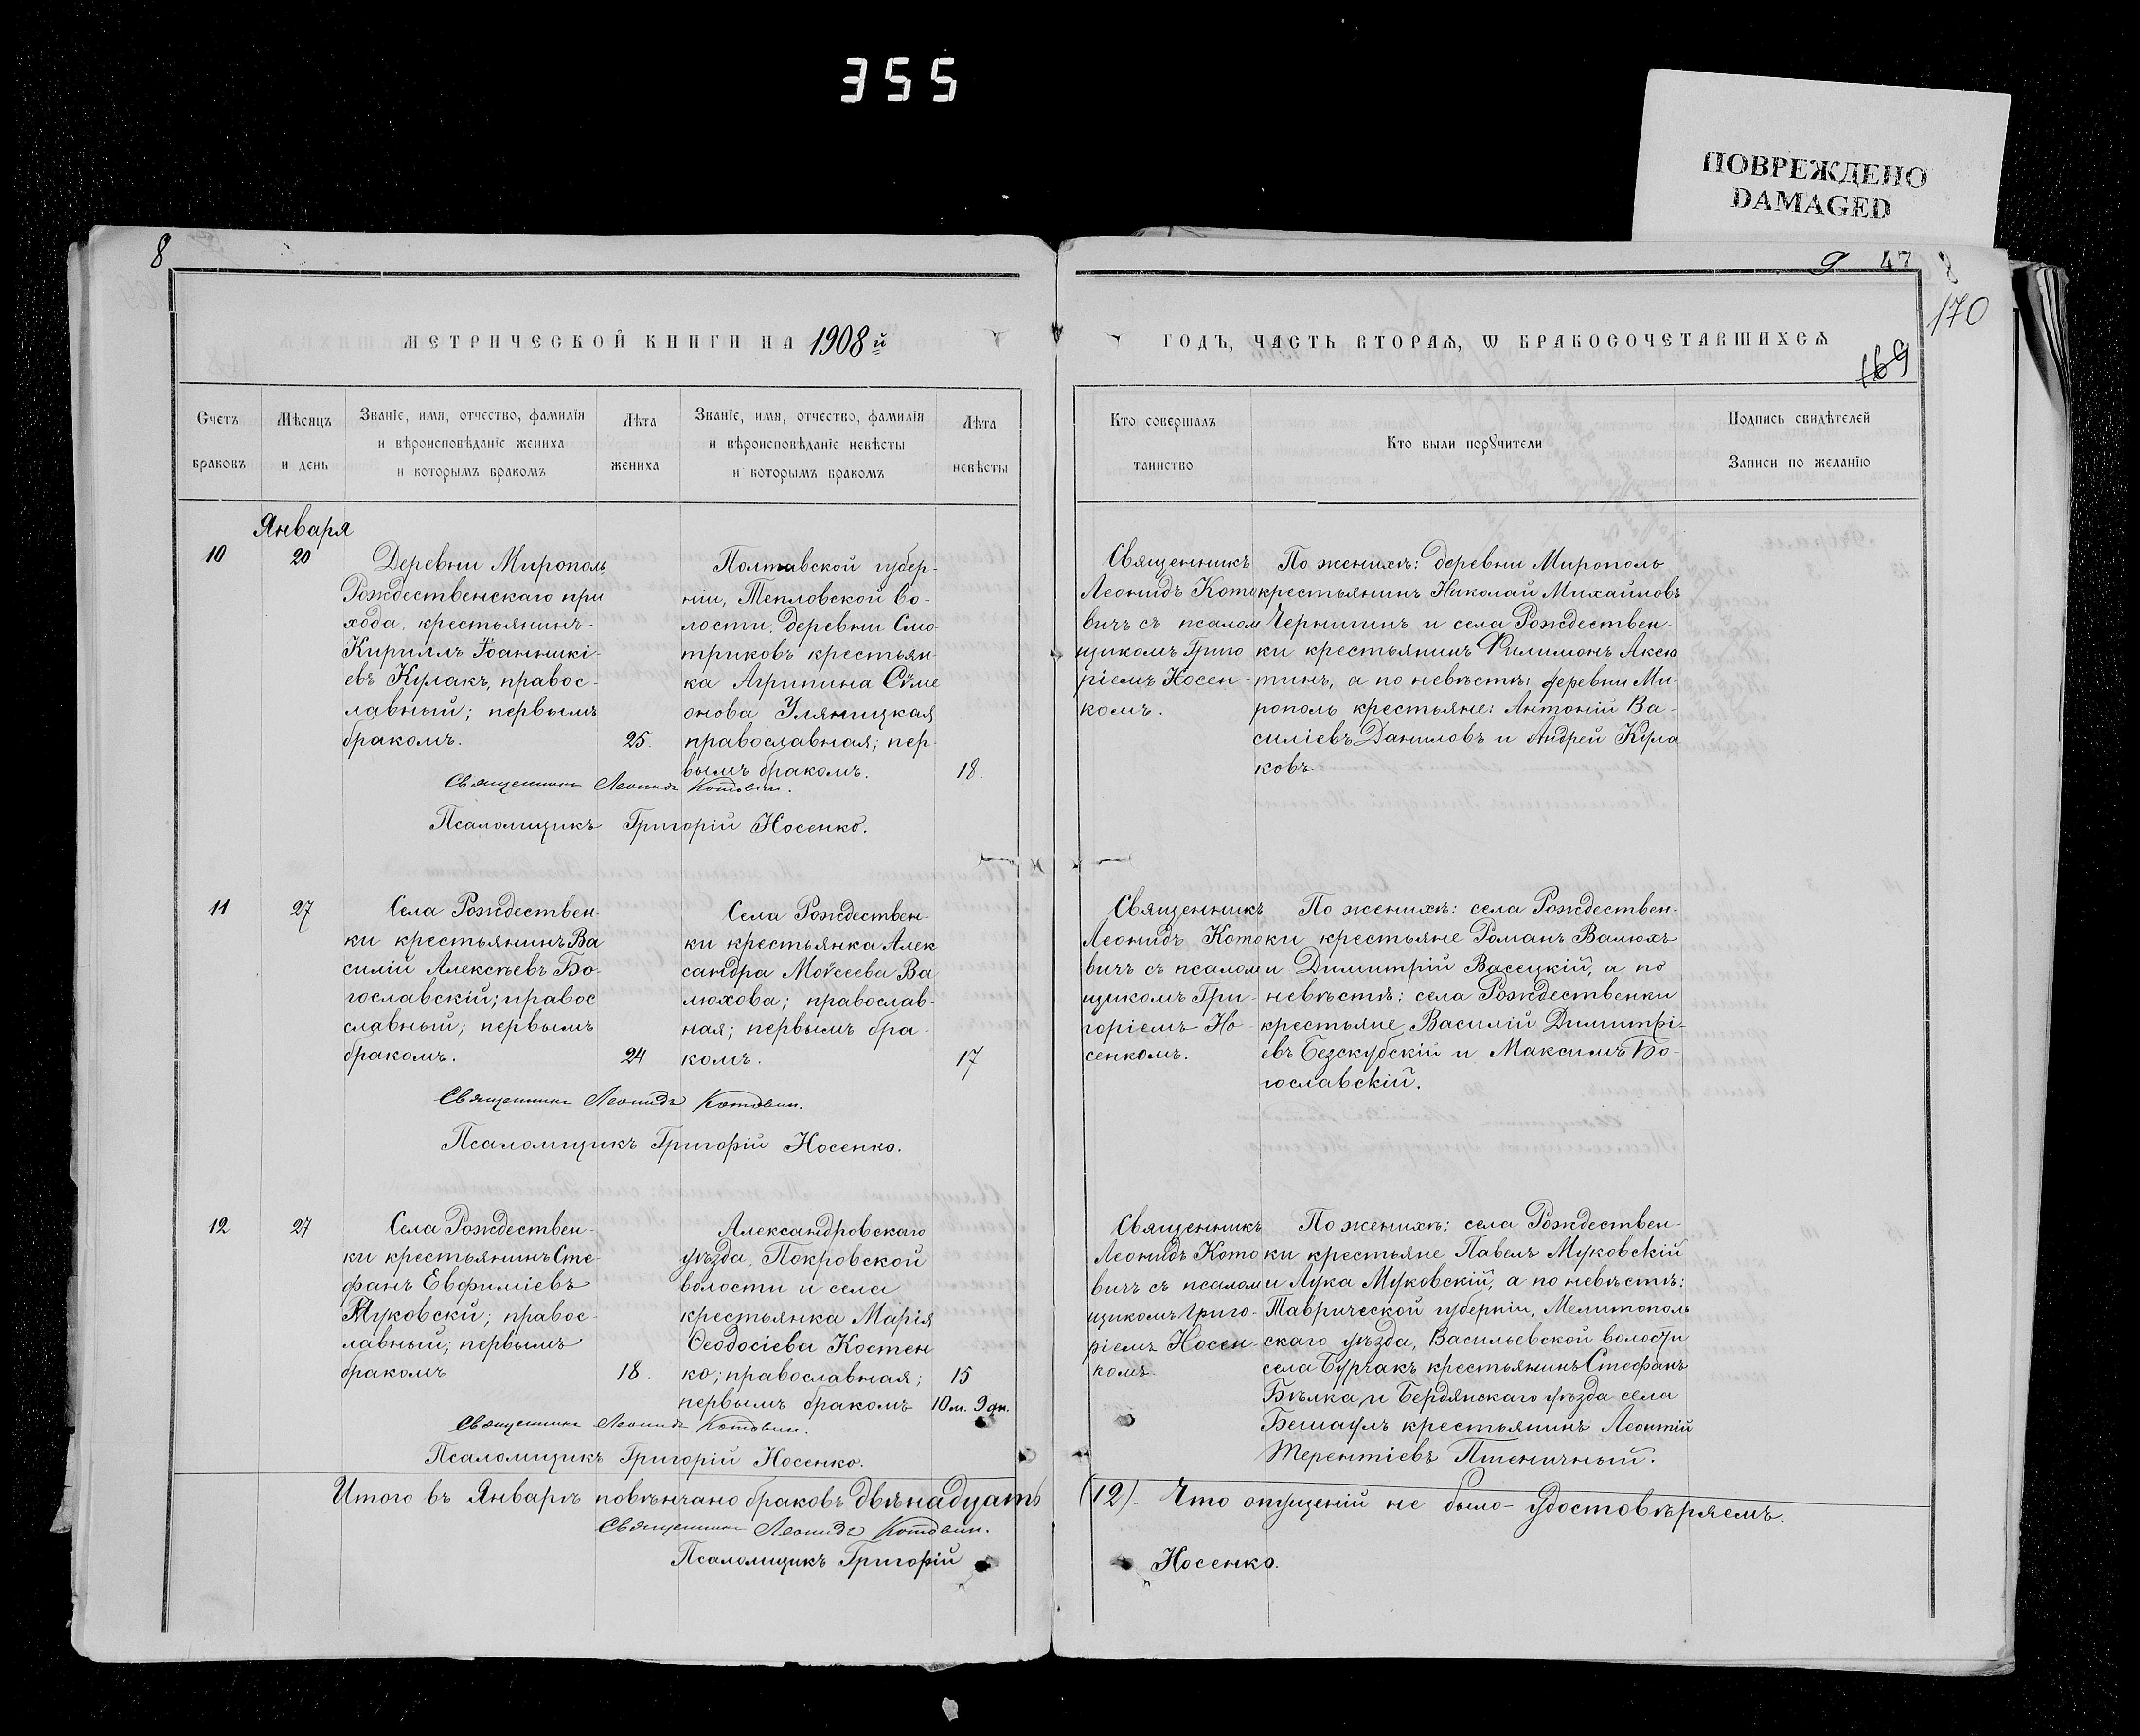 355
ПОВРЕЖДЕНО
DAMAGED
8
9 47 8
170
169
МЕТРИЧЕСКОЙ КНИГИ НА 1908й
ГОДЪ, ЧАСТЬ ВТОРАЯ, Ѡ БРАКОСОЧЕТАВШИХСЯ
Счетъ
браковъ
Мѣсяцъ
и день
Званіе, имя, отчество, фамилія
и вѣроисповѣданіе жениха
и которымъ бракомъ
Лѣта
жениха
Званіе, имя, отчество, фамилія
и вѣроисповѣданіе невѣсты
и которымъ бракомъ
Лѣта
невѣсты
Кто совершалъ
таинство
Кто были поручители
Подпись свидѣтелей
Записи по желанію
Января
10
20
Деревни Мирополь
Рождественскаго при
хода, крестьянинъ
Кириллъ Іоанникі-
евъ Кулакъ, правос-
лавный; первымъ
бракомъ.
25.
Полтавской губер-
ніи, Тепловской во-
лости, деревни Смо-
триковъ крестьян-
ка Агрипина Сѵме
онова Уляницкая
православная; пер-
вымъ бракомъ.
18.
Священникъ
Леонидъ Кото
вичъ съ псалом
щикомъ Григо
ріемъ Носен-
комъ.
По женихѣ: деревни Мирополь
крестьянинъ Николай Михайловъ
Чернигинъ и села Рождествен-
ки крестьянинъ Филимонъ Аксю
тинъ, а по невѣстѣ: деревни Ми-
рополь крестьяне: Антоній Ва-
силіевъ Даниловъ и Андрей Кула
ковъ
Священникъ Леонидъ Котовичъ.
Псаломщикъ Григорій Носенко.
11
27
Села Рождествен-
ки крестьянинъ Ва
силій Алексѣевъ Бо-
гославскій; правос
славный; первымъ
бракомъ.
24
Села Рождествен-
ки крестьянка Алек
сандра Моѵсеева Ва
люхова; православ-
ная; первымъ бра-
комъ.
17
Священникъ
Леонидъ Кото
вичъ съ псалом
щикомъ Гри-
горіемъ Но-
сенкомъ.
По женихѣ: села Рождествен-
ки крестьяне Романъ Валюхъ
и Димитрій Васецкій, а по
невѣстѣ: села Рождественки
крестьяне, Василій Димитрі-
евъ Безскубскій и Максимъ Бо-
гославскій.
Священникъ Леонидъ Котовичъ.
Псаломщикъ Григорій Носенко.
12
27
Села Рождествен-
ки крестьянинъ Сте
фанъ Евфиміевъ
Муковскй; правос-
лавный; первымъ
бракомъ
18.
Александровскаго
уѣзда, Покровской
волости и села
крестьянка Марія
Ѳеодосіева Костен
ко; православная;
первымъ бракомъ
15
10 м. 9 дн.
Священникъ
Леонидъ Кото
вичъ съ псалом
щикомъ Григо-
ріемъ Носен-
комъ.
По женихѣ: села Рождествен-
ки крестьяне Павелъ Муковскій
и Лука Муковскій, а по невѣстѣ:
Таврической губерніи, Мелитополь
скаго уѣзда, Васильевской волости
села Бурчакъ крестьянинъ Стефанъ
Бѣлка и Бердянскаго уѣзда села
Бешаулъ крестьянинъ Леонтій
Терентіевъ Пшеничный.
Священникъ Леонидъ Котовичъ.
Псаломщикъ Григорій Носенко.
Итого въ Январѣ повѣнчано браковъ двѣнадцать (12). Что опущеній не было – удостовѣряемъ.
Священникъ Леонидъ Котовичъ.
Псаломщикъ Григорій Носенко.